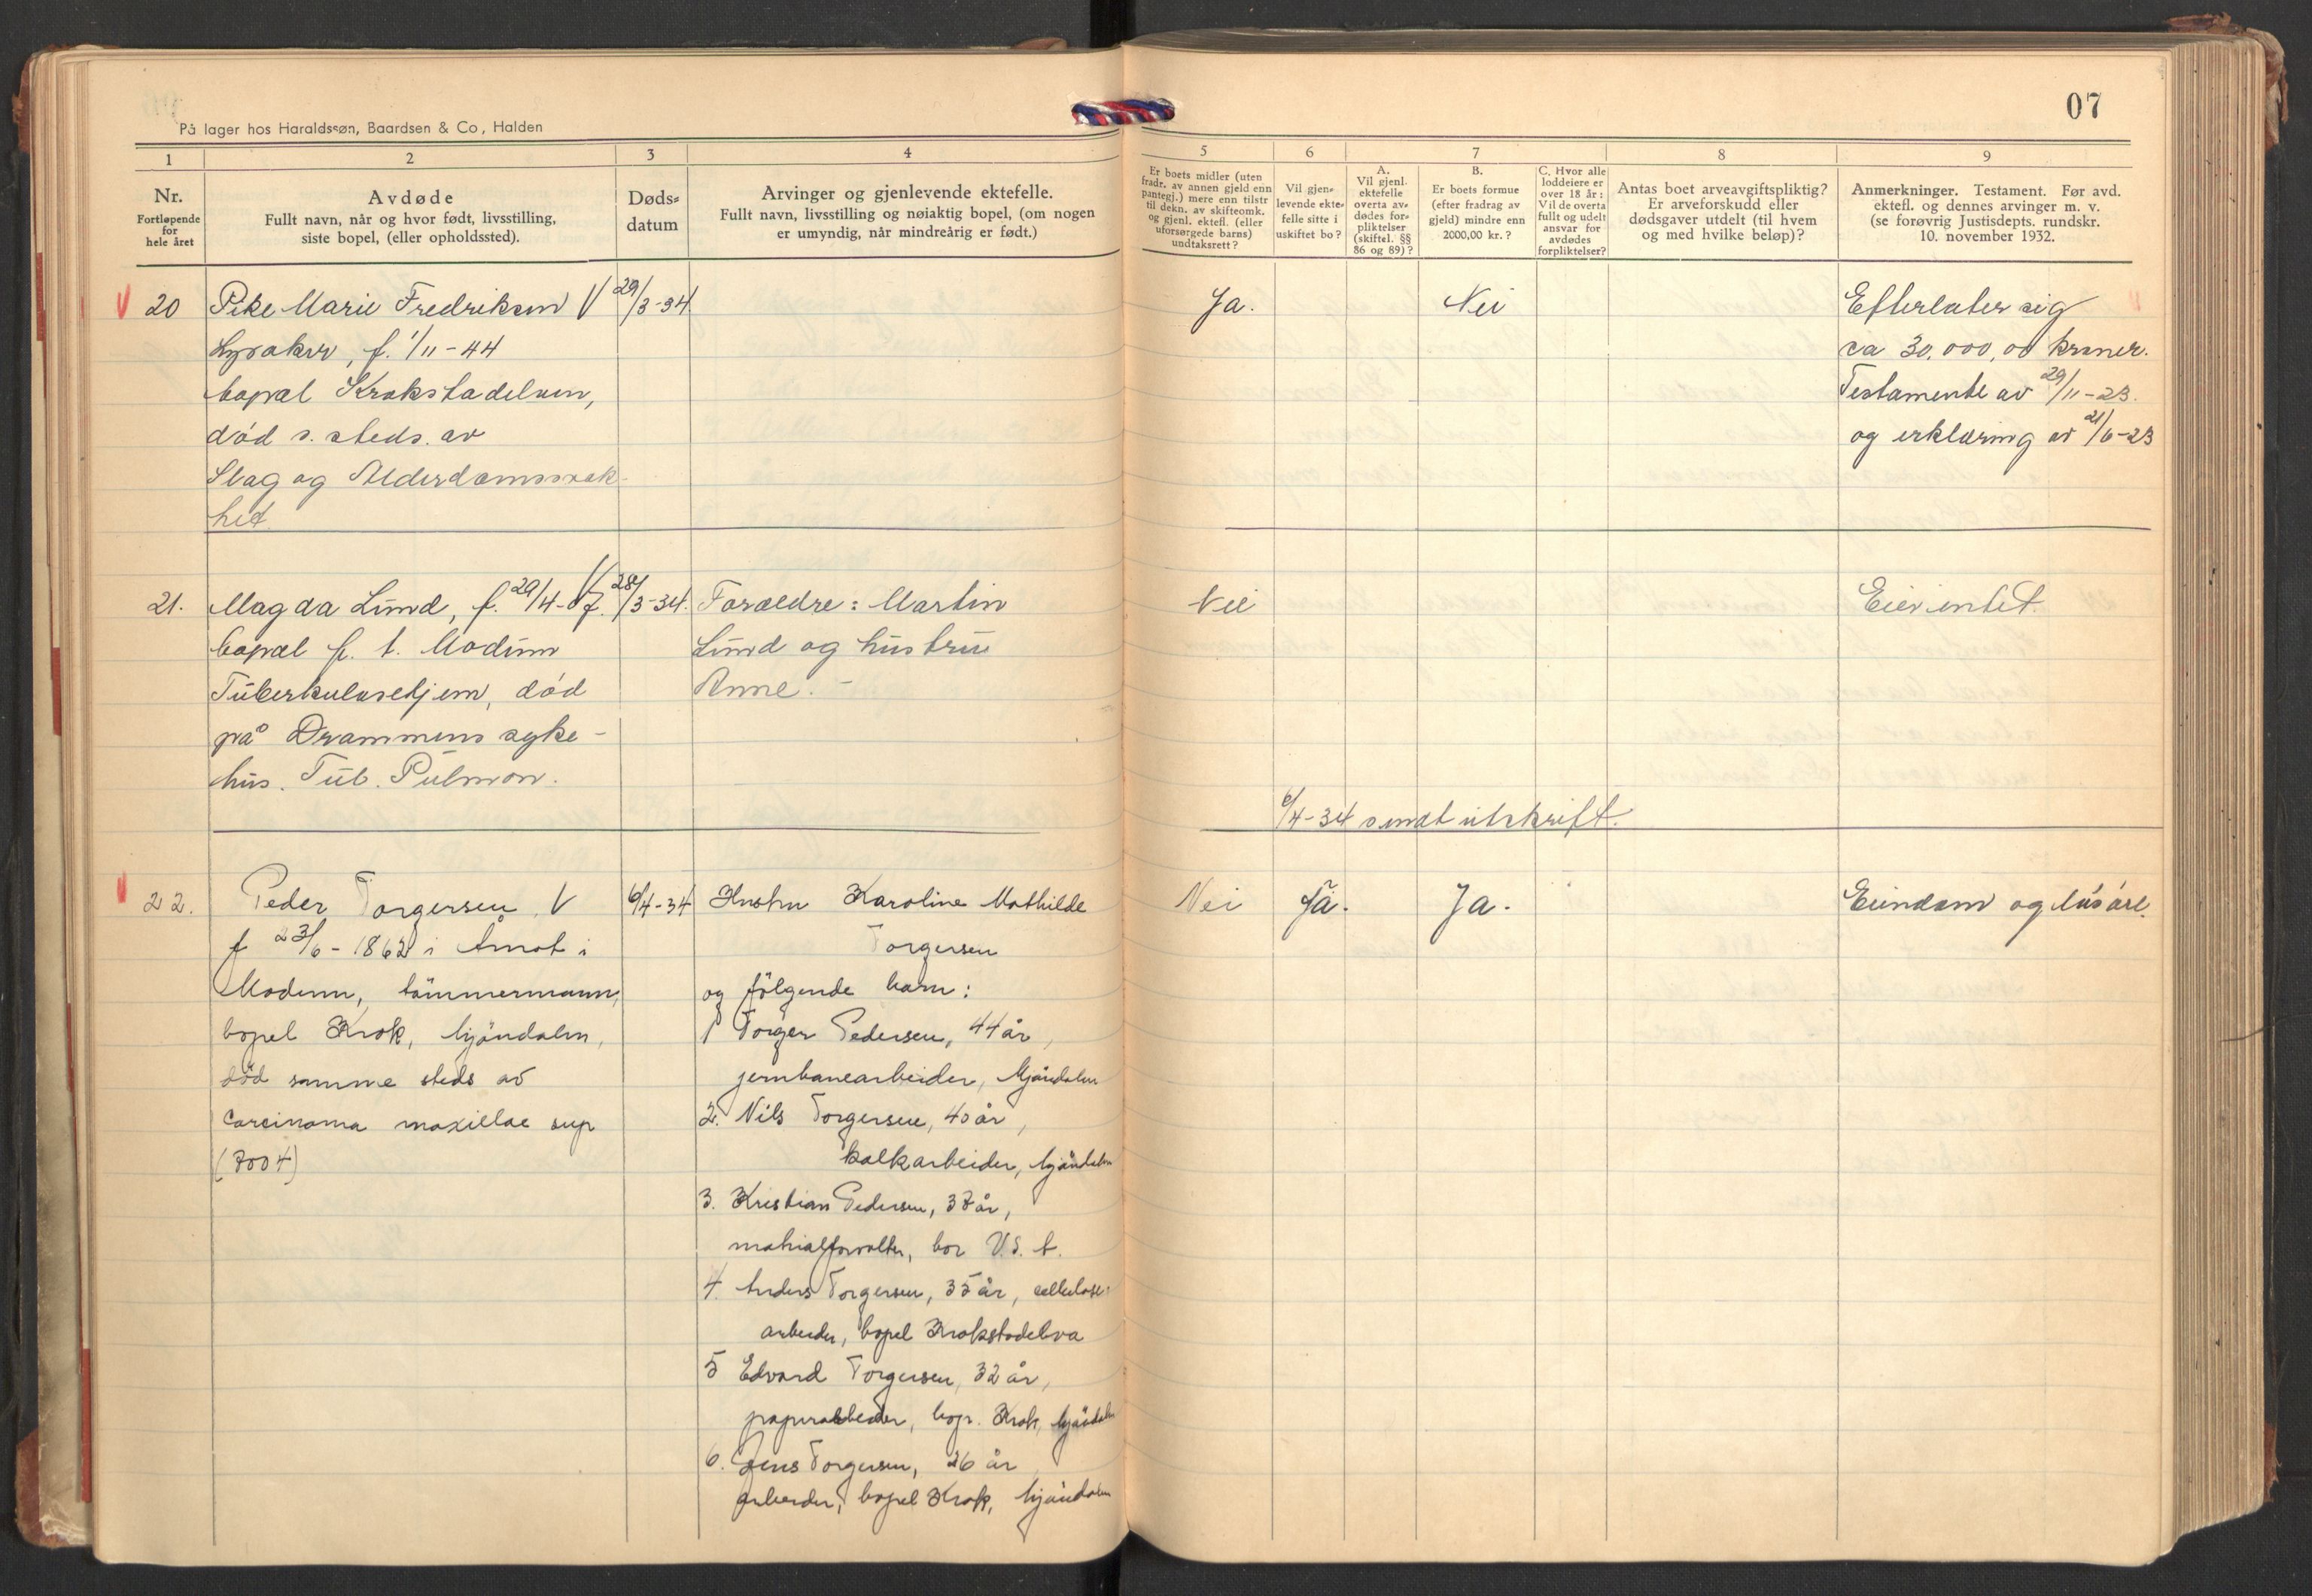 07
På lager hos Haraldssøn, Baardsen & Co, Halden
1
2
3
4
5
6
7
8
9
Nr.
Fortløpende
for
hele året
Avdøde
Fullt navn, når og hvor født, livsstilling,
siste bopel, (eller opholdssted).
Døds-
datum
Arvinger og gjenlevende ektefelle.
Fullt navn, livsstilling og nøiaktig bopel, (om nogen
er umyndig, når mindreårig er født.)
Er boets midler (uten
fradr. av annen gjeld enn
pantegj.) mere enn tilstr
til dekn. av skifteomk.
og gjenl. ektefl. (eller
uforsørgede barns)
undtaksrett?
Vil gjen-
levende ekte-
felle sitte i
uskiftet bo?
A.
Vil gjenl.
ektefelle
overta av-
dødes for-
pliktelser
(skiftel. §§
86 og 89)?
B.
Er boets formue
(efter fradrag av
gjeld) mindre enn
2000,00 kr.?
C. Hvor alle
loddeiere er
over 18 år:
Vil de overta
fullt og udelt
ansvar for
avdødes
forpliktelser?
Antas boet arveavgiftspliktig?
Er arveforskudd eller
dødsgaver utdelt (til hvem
og med hvilke beløp)?
Anmerkninger. Testament. Før avd.
ektefl. og dennes arvinger m. v.
(se forøvrig Justisdepts. rundskr.
10. november 1932.
V 20 Pike Marie Fredriksen V 29/3-34.
f. 1/11-44
bopæl Krokstadelven,
død s. steds. av
Slag og Alderdomssvak-
het.
Ja.
Nei
Efterlater sig
ca 30.000,00 kroner.
Testamente av 29/11-23.
og erklæring av 21/6-23
21. Magda Lund, f. 29/4-07. V 28/3-34.
bopæl p. t. Modum
Tuberkulosehjem, død
på Drammens syke-
hus. Tub. Pulmon.
Foræeldre: Martin
Lund og hustru
Anne. -
Nei
Eier intet.
6/4-34 sendt utskrift.
V 22. Peder Torgersen V 6/4-34
f 23/6-1862 i Åmot i
Modum, tømmermann,
bopel Krok, Mjøndalen,
død samme steds av
Carcinoma maxillae sup
(7004)
Hustru Karoline Mathilde
Torgersen
og følgende barn:
1 Torger Pedersen, 44 år,
jernbanearbeider, Mjøndalen
2. Nils Torgersen, 40 år,
kalkarbeider, Mjøndalen
3. Kristian Pedersen, 37 år,
matrialforvalter, bor U.S.A.
4. Anders Torgersen, 35 år, cellulose-
arbeider, bopel Krokstadelva
5 Edvard Torgersen, 32 år,
papirarbeider, bop. Krok, Mjøndalen
6. Jens Torgersen, 26 år
arbeider, bopel Krok, Mjøndalen
Nei
Ja.
Ja.
Eiendom og løsøre.